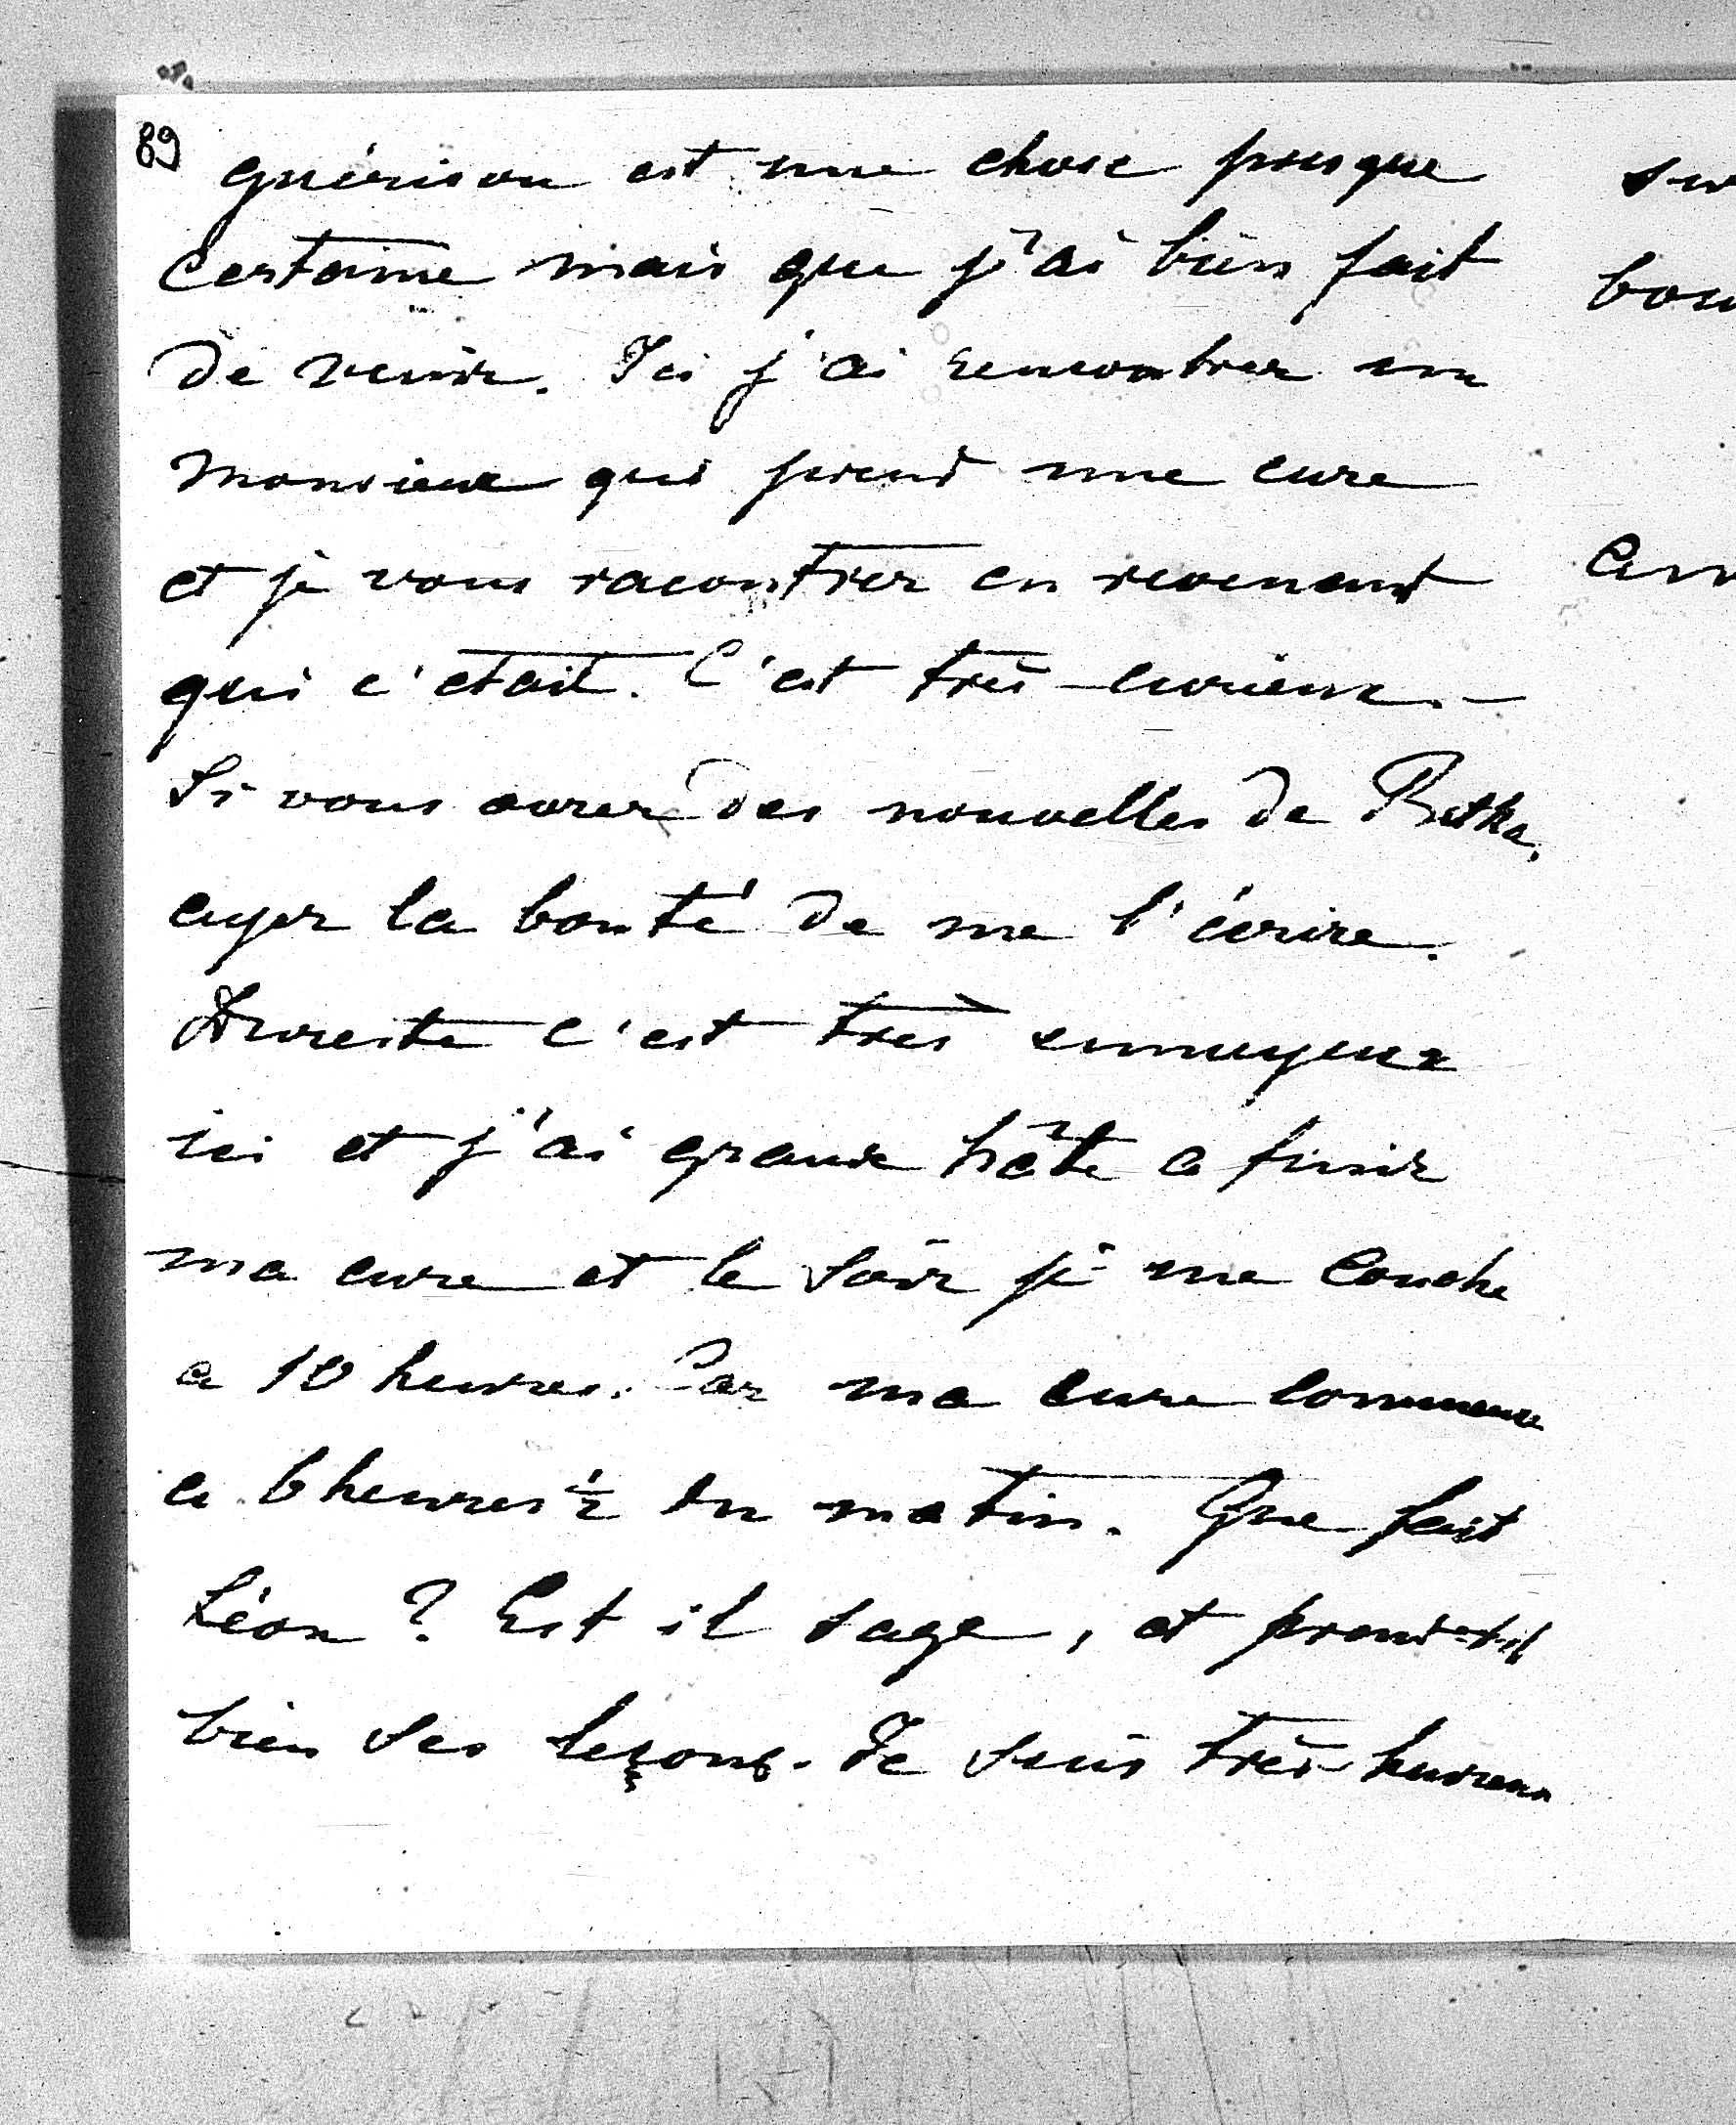 89
guérison est une chose presque
certaine mais que j'ai bien fait
de venir. Ici j'ai rencontrer un
Monsieur qui prend une cure
et je vous racontrer en revenant
qui c'etait. C'est très curieux. —
Si vous avez des nouvelles de
ayez la bonté de me l'écrire.
Dureste c'est très ennuyeux
ici et j'ai grande hâte a finir
ma cure et le soir je me couche
a 10 heures. Car ma cure commence
a 6 heures ½ du matin. Que fait
Léon ? Est il sage, et prend-t-il
bien ses leçons. Je suis très heureux